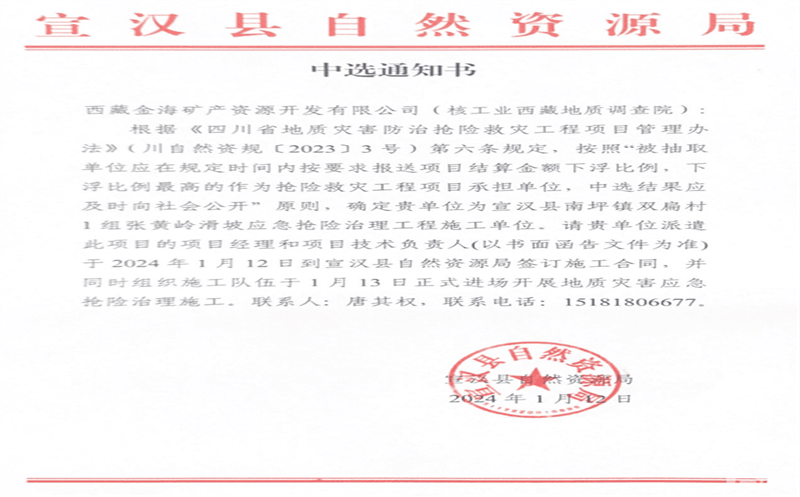 宣汉县自然资源局
中选通知书
西藏金海矿产资源开发有限公司（核工业西藏地质调查院）：
根据《四川省地质灾害防治抢险救灾工程项目管理办
法》（川自然资规〔2023〕3号）第六条规定，按照“被抽取
单位应在规定时间内按要求报送项目结算金额下浮比例，下
浮比例最高的作为抢险救灾工程项目承担单位，中选结果应
及时向社会公开”原则，确定贵单位为宣汉县南坪镇双扁村
1组张黄岭滑坡应急抢险治理工程施工单位。请贵单位派遣
此项目的项目经理和项目技术负责人(以书面函告文件为准)
于2024年1月12日到宣汉县自然资源局签订施工合同，并
同时组织施工队伍于1月13日正式进场开展地质灾害应急
抢险治理施工。联系人：唐其权，联系电话：15181806677。
宣汉县自然资源局
宣汉县自然资源局
2024年1月12日